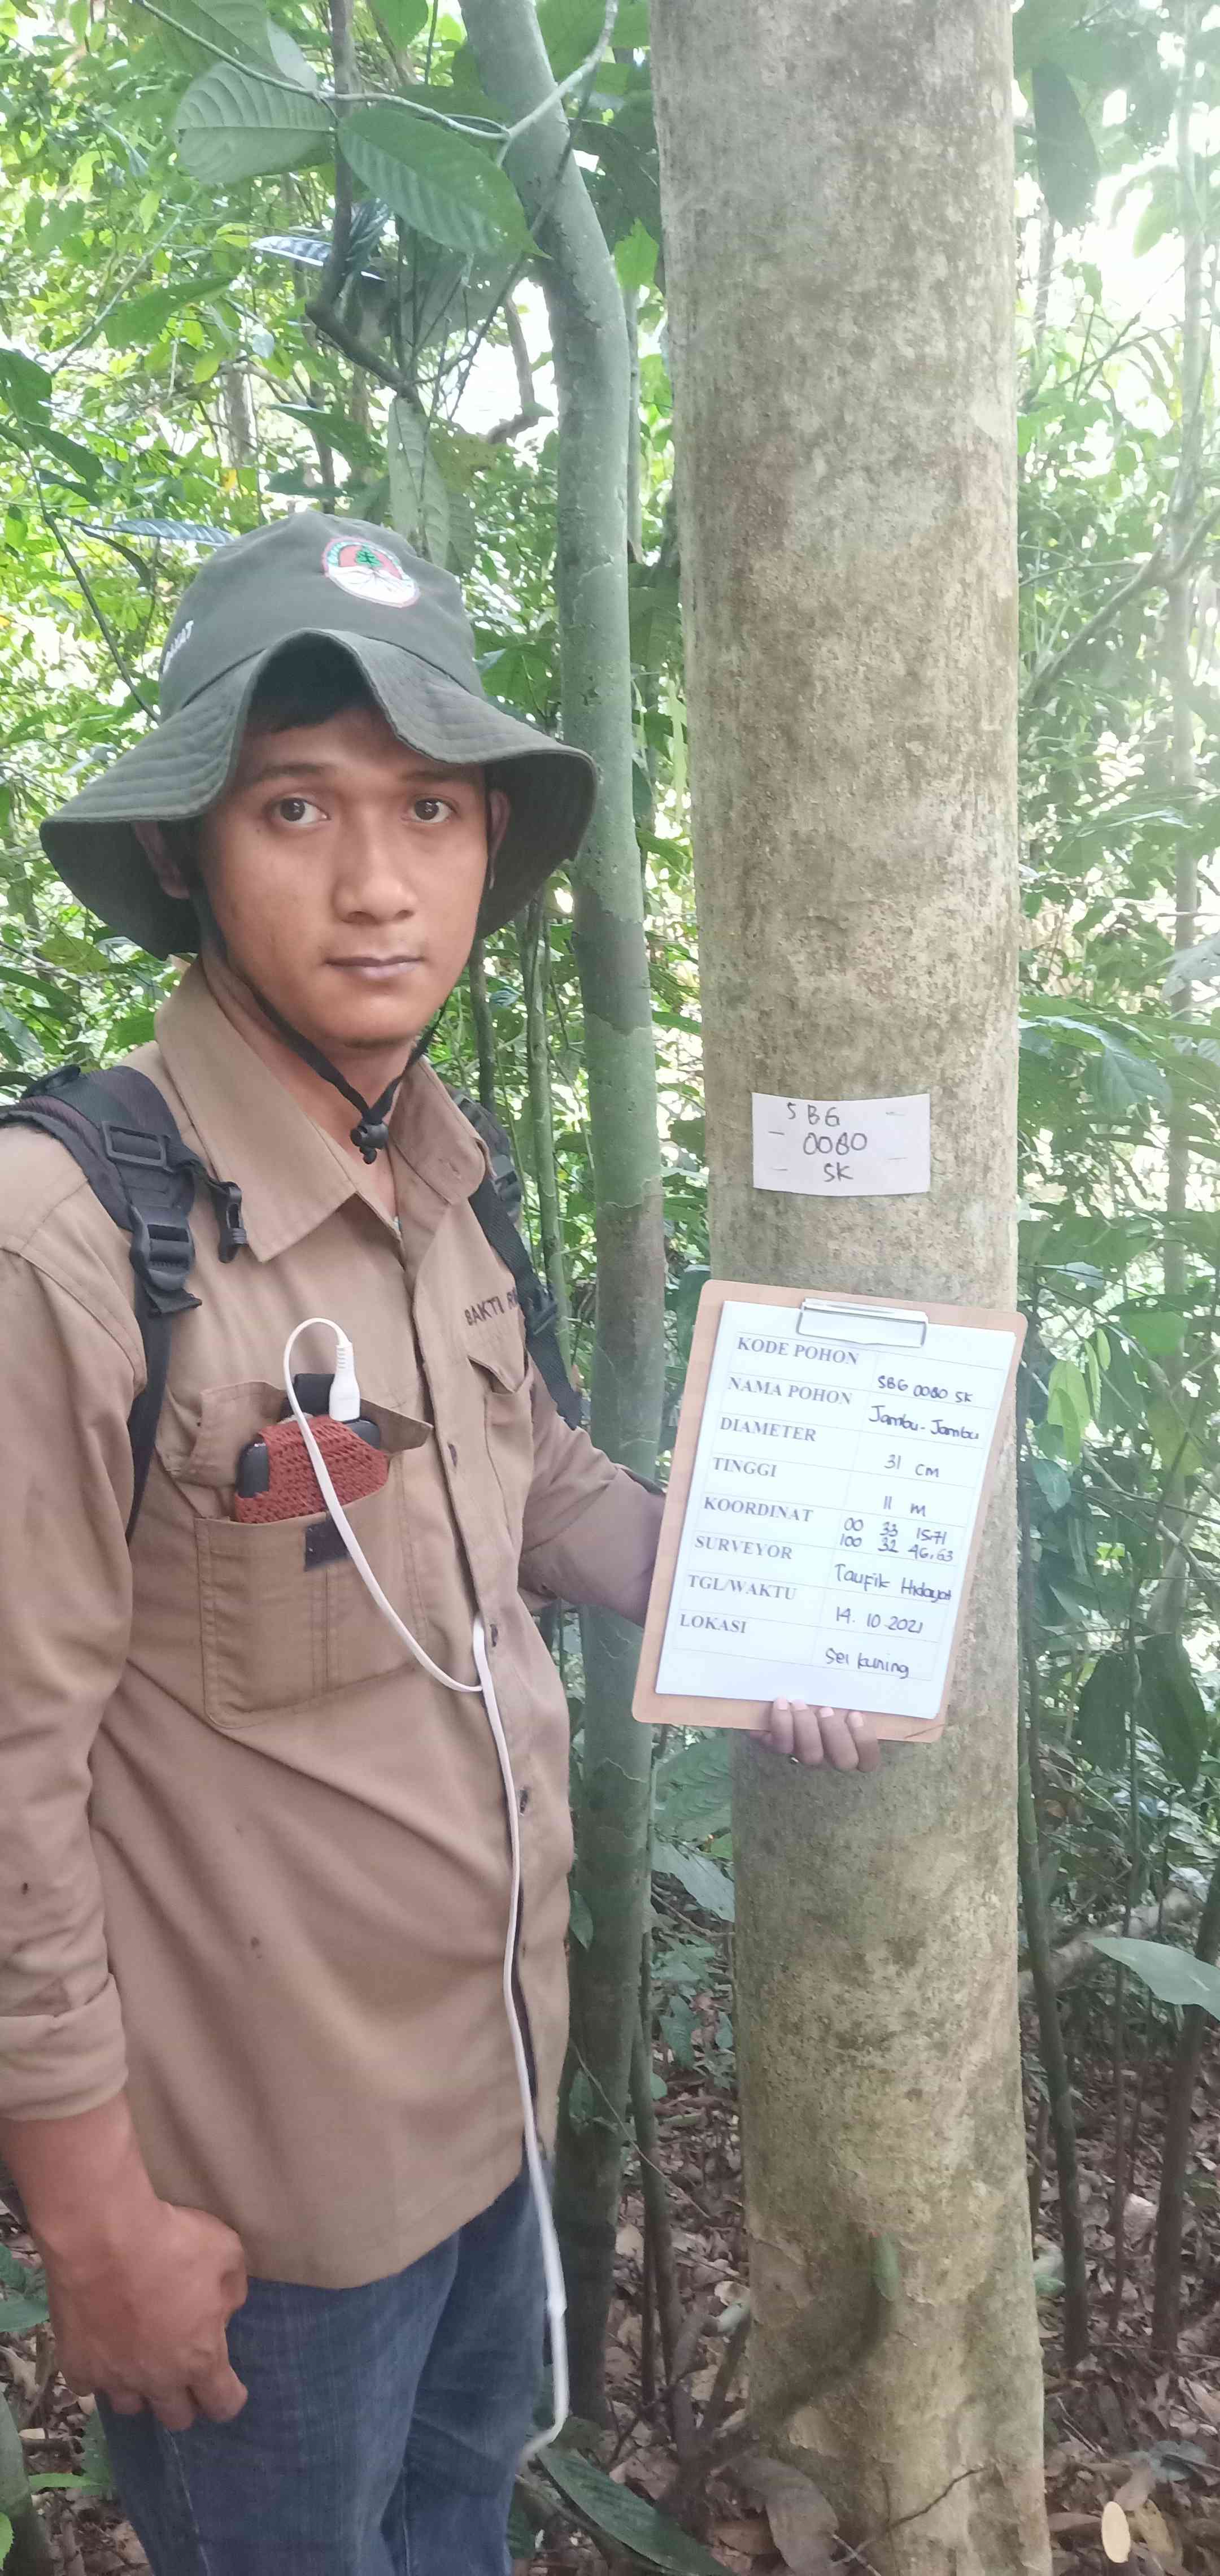 BAKTI
SBG
0080
SK
KODE POHON SBG 0080 SK
NAMA POHON Jambu-Jambu
DIAMETER 31 cm
TINGGI 11 m
KOORDINAT 00 33 15.71
100 32 46.63
SURVEYOR Taufik Hidayat
TGL/WAKTU 14.10.2021
LOKASI Sei kuning